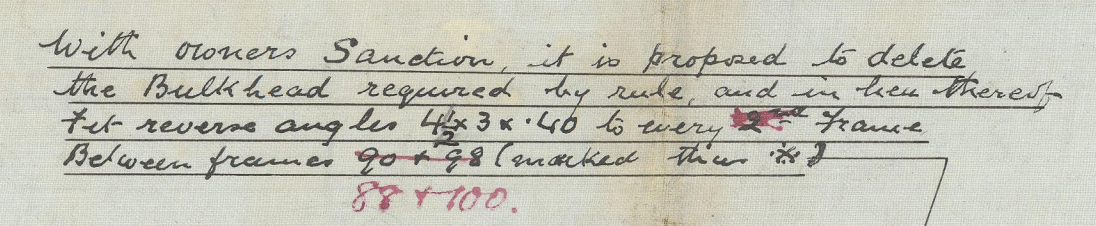 With owners Sanction, it is proposed to delete
the Bulkhead required by rule, and in lieu thereof
Fit reverse angles 4½ x 3 x .40 to every 2nd Frame
Between frames 90 + 98 (marked thus ※)
88 + 100.